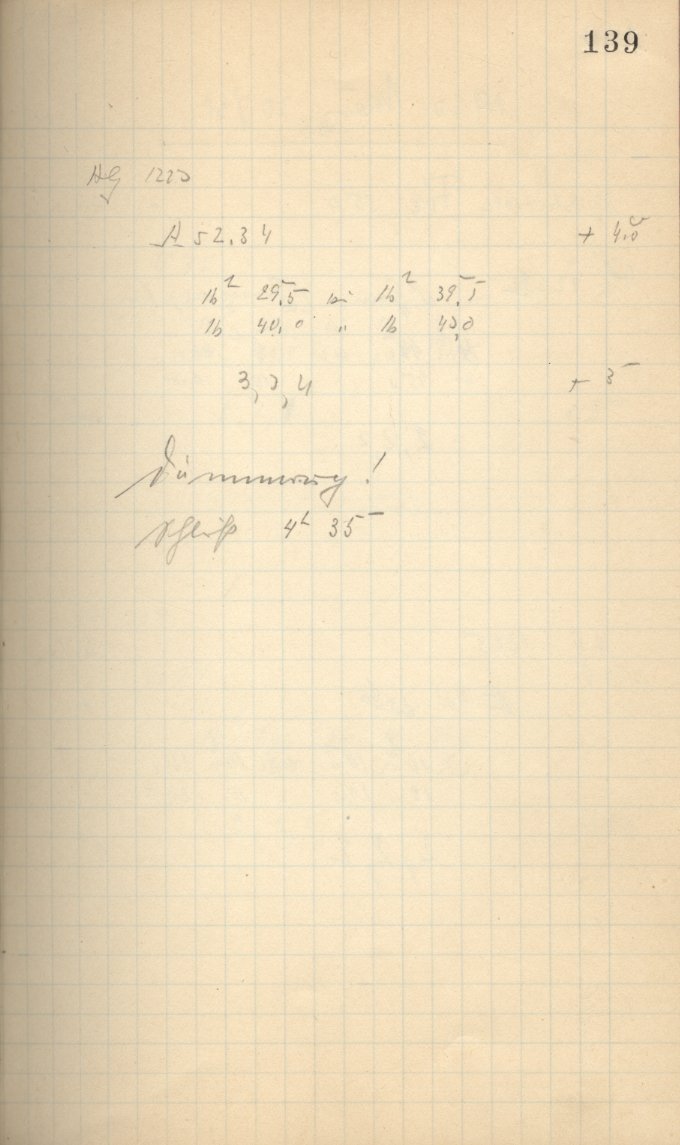 139
AG 1223
A 52.34 + 4,0
16h 29,5 bis 16h 39,5
16 40,0 " 16 43,0
3, 3, 4 + 3
Dämmerung!
Schluß 4h 35